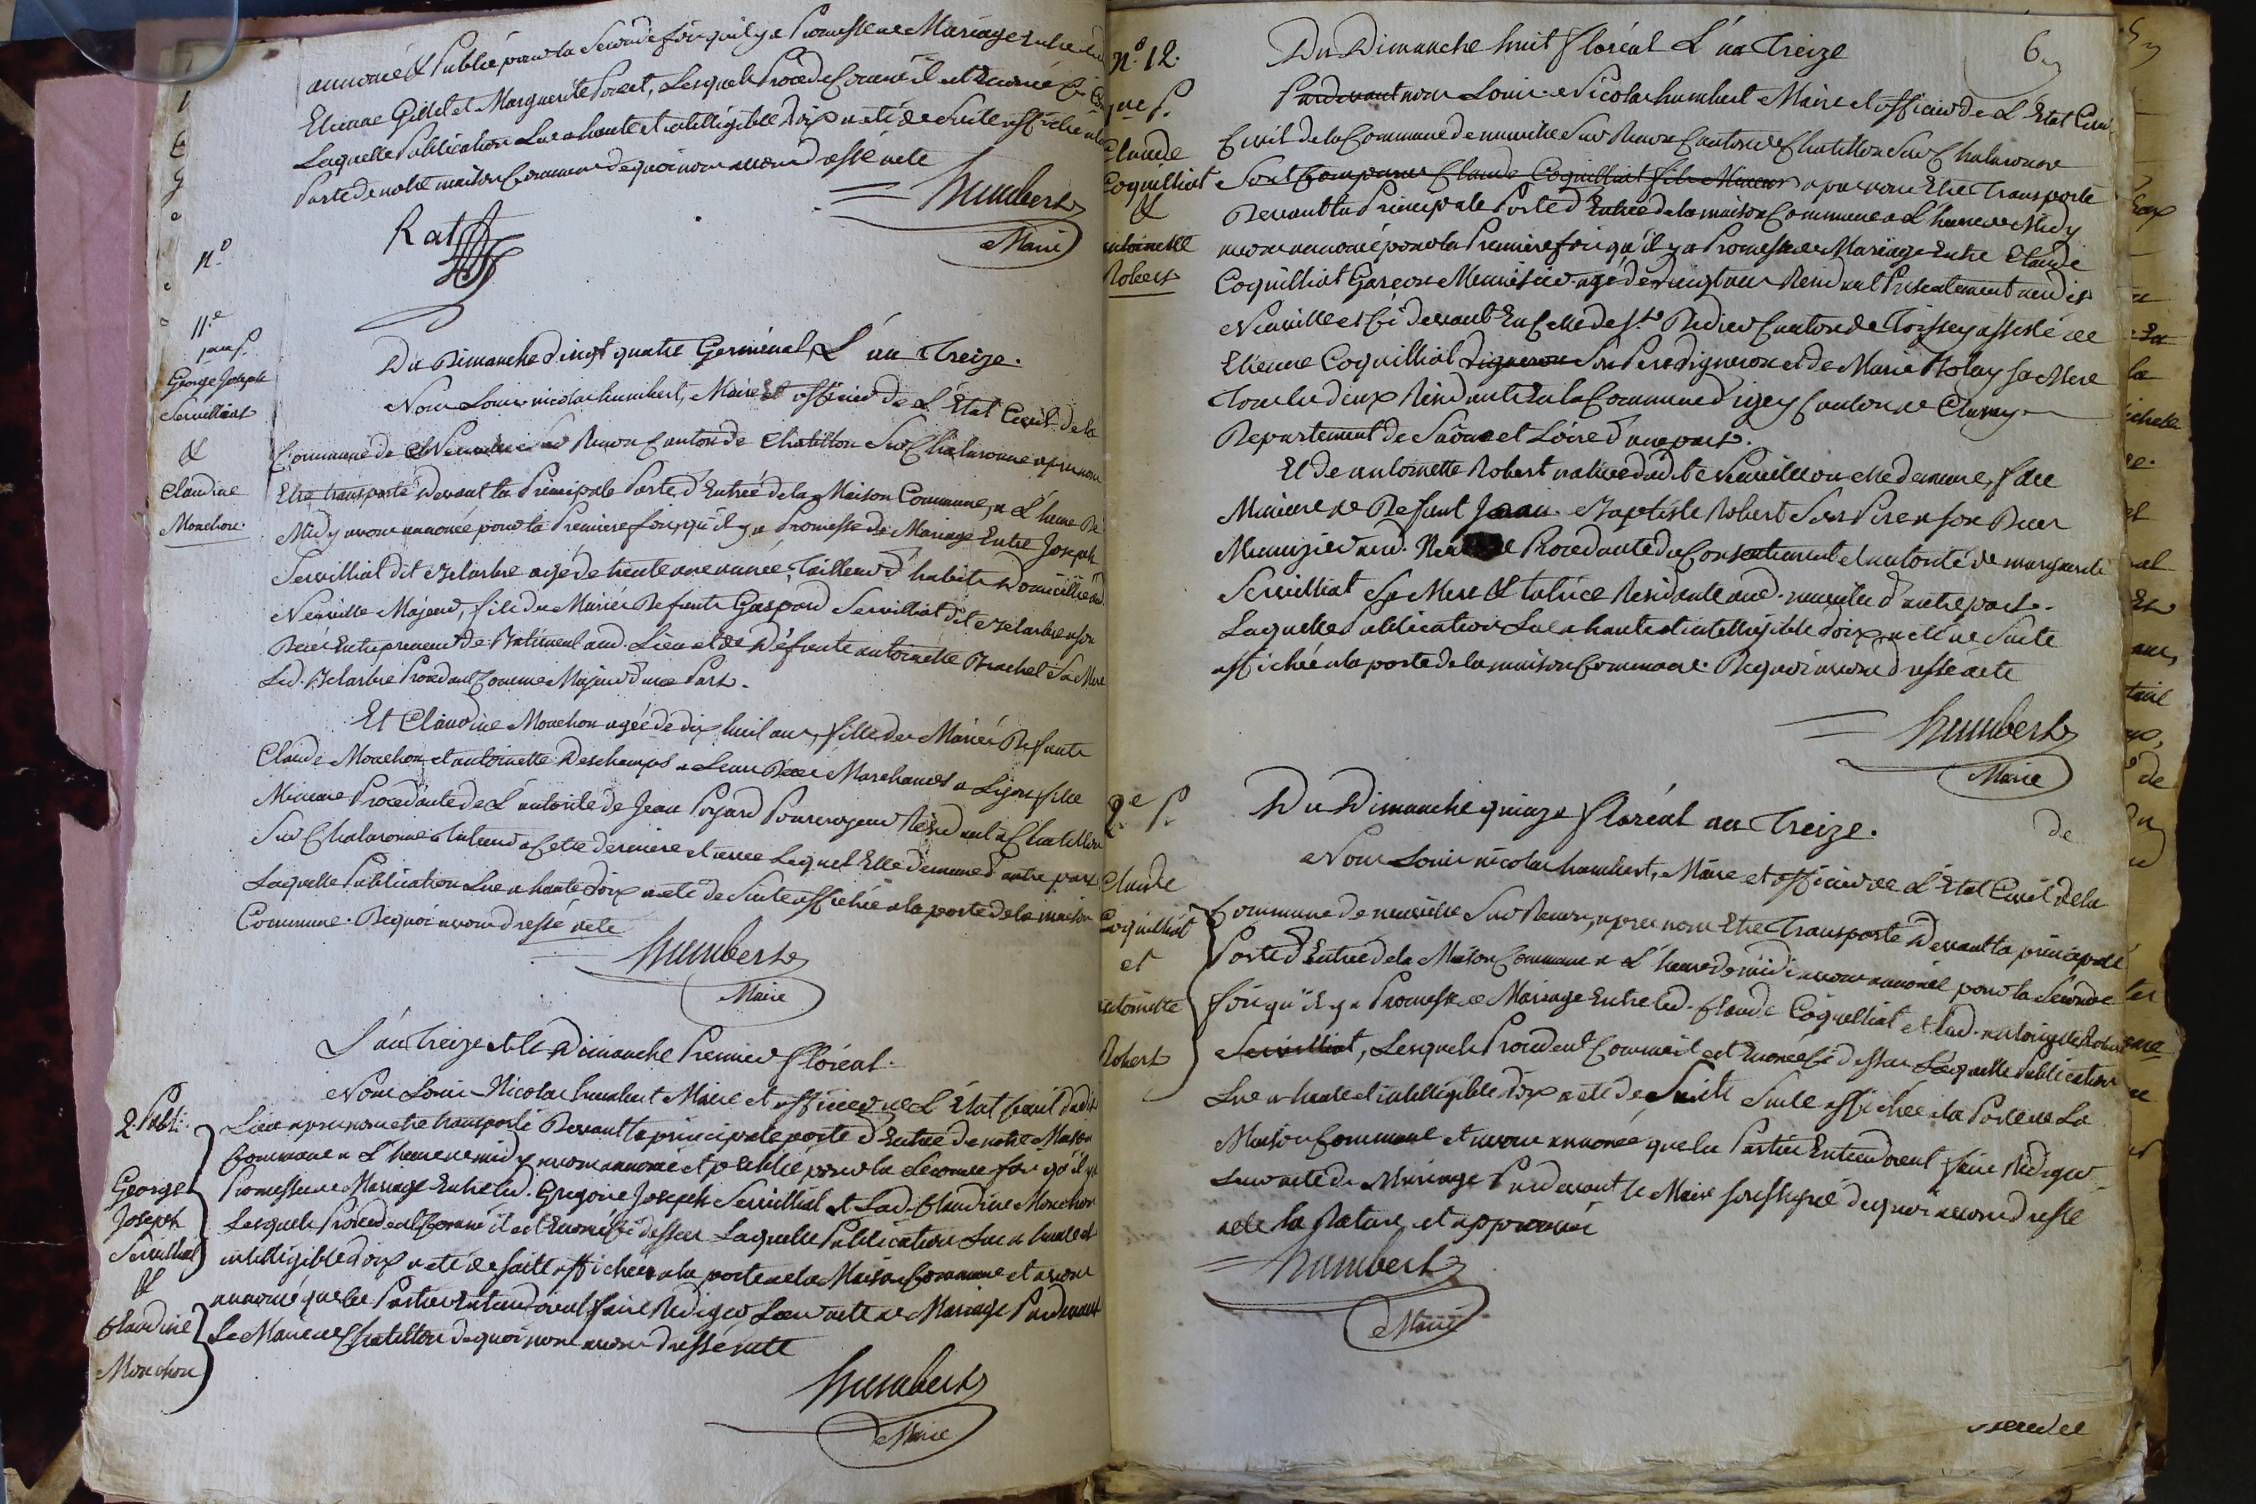 annoncé & Publié pour la Seconde fois qu'il y a Promesse de Mariage Entre
Etienne Gillet et Marguerite Poret, Lesquels Procède Comme il est Enoncé
Laquelle Publication Lue a haute et intelligible voix a été de Suite affichée a la
Porte de notre maison Commune de quoi nous avons dressé acte
Humbert
Maire
Rat
n.º
11.e
pre p.
George Joseph
Servilliat
&
Claudine
Monchon.
Du Dimanche Vingt quatre Germinal L'an Treize.
Nous Louis nicolas humbert, Maire Et officier de L'Etat Civil de la
Commune de Neuville Sur Renon Canton de Chatillon Sur Chalaronne apres nous
Etre transporté devant la Principale Porte d'Entrée de la Maison Commune, a L'heure De
Midy avons annoncé pour la Premiere fois, qu'il y a Promesse de Mariage Entre Joseph
Servilliat dit Delarbre agé de trente une année, Tailleur d'habits Domicillié aud.
Neuville Majeur, fils des Mariés Defunts Gaspard Servilliat dit Delarbre a son
Deces Entrepreneur de Batiment aud. Lieu et de Défunte antoinette Brachet Sa Mere
Led. Delarbre Procedant Comme Majeur d'une Part.
Et Claudine Monchon agée de dix huit ans, fille des Mariés Defunts
Claude Monchon et antoinette Deschamps a Leur Déces Marchands a Lyon fille
Mineure Procedante de L'autorité de Jean Poyard Pourvoyeur Résidant a Chatillon
Sur Chalaronne Tuteur a Cette derniere et avec Lequel Elle demeure d'autre part
Laquelle Publication Lue a haute Voix a été de Suite affichée a la porte de la maison
Commune. De quoi avons dressé acte
Humbert
Maire
L'an Treize et le Dimanche Premier floréal.
2. Publi.
George
Joseph
Servilliat
&
Claudine
Monchon
Nous Louis Nicolas humbert Maire et officier de L'Etat Civil dudit
Lieu apres nous etre transporté Devant la principale porte d'Entrée de notre Maison
Commune a L'heure de midy avons annoncé et publié pour la Seconde fois qu'il y a
Promesse de Mariage Entre led. Gregoire Joseph Servilliat et Lad. Claudine Monchon
Lesquels Procedent Comme il est Enoncé Ci dessus Laquelle Publication Lue a haute et
intelligible voix a été de suite affichée a la porte de la Maison Commune et avons
annoncé que les Parties Entendroient faire Rédiger Leur acte de Mariage Pardevant
Le Maire de Chatillon de quoi nous avons dressé acte
Humbert
Maire
nº. 12.
1re P.
Claude
Coquilliat
&
antoinette
Robert
6
Du Dimanche huit floréal L'an Treize
Pardevant nous Louis Nicolas humbert Maire et officier de L'Etat Civil
Civil de la Commune de neuville Sur Renon Canton de Chatillon Sur Chalaronne
Sont Comparus Claude Coquilliat fils Mineur apres nous Etre Transporté
Devant la Principale Porte d'Entrée de la maison Commune a L'heure de Midy
avons annoncé pour la Premiere fois qu'il y a Promesse de Mariage Entre Claude
Coquilliat Garçon Menuisier agé de vingt ans Résidant Présentement aud.
Neuville et Ci devant En Celle de St. Didier Canton de Thoissey assisté de
Etienne Coquilliat Vigneron Son Pere Vigneron et de Marie Bolay sa Mere
Tous les deux Résidants En la Commune d'igey Canton de Cluny
Departement de Saône et Loire d'une part.
Et de antoinette Robert native dud. de Neuville ou elle demeure, fille
Mineure de Defunt Jean Baptiste Robert Son Pere a son Deces
Menuizier aud. Procedante du Consentement et autorité de marguerite
Servilliat Sa Mere & tutrice Résidante aud. neuville d'autre part.
Laquelle Publication Lue a haute et intelligible voix a été de Suite
affichée a la porte de la maison Commune. De quoi avons dressé acte
Humbert
Maire
2.e P.
Claude
Coquilliat
et
antoinette
Robert
Du Dimanche quinze floréal an Treize.
de
Nous Louis nicolas humbert, Maire et officier de L'Etat Civil de la
Commune de neuville Sur Renon, apres nous Etre Transporté Devant la principale
Porte d'Entrée de la Maison Commune a L'heure de midi avons annoncé pour la Seconde
fois qu'il y a Promesse de Mariage Entre led. Claude Coquilliat et Lad. antoinette Robert
Servilliat, Lesquels Procedent Comme il est Enoncé Ci dessus Laquelle Publication
Lue a haute et intelligible voix a été de Suite Suite affichée a la Porte de La
Maison Commune et avons annoncé que les Parties Entendroient faire Rédiger
Leur acte de Mariage Pardevant le Maire soussigné de quoi avons dressé
acte la Rature et approuvé
Humbert
Maire